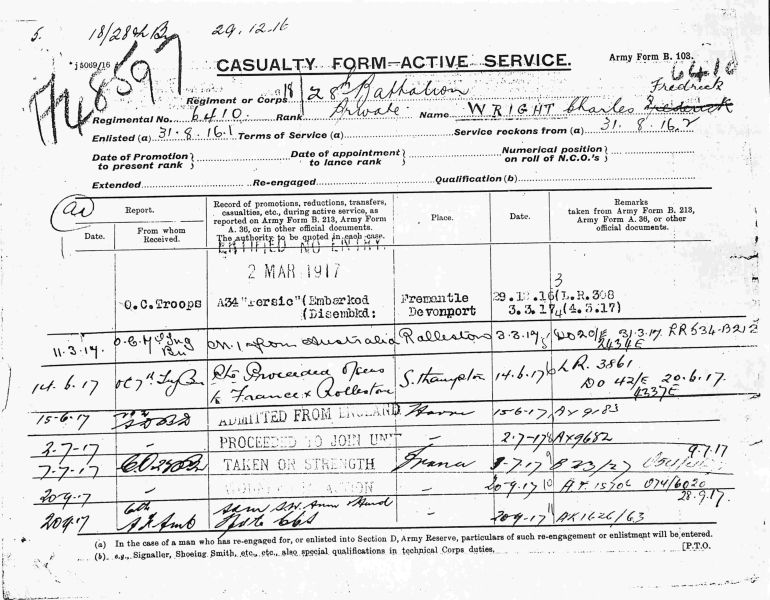 5. 18/28th Bn 29.12.16
*j 5069/16
CASUALTY FORM—ACTIVE SERVICE.
Army Form B. 103.
8597
6410
Fredrick
Regiment or Corps 18/28th Battalion
Regimental No. 6410. Rank Private Name WRIGHT Charles Frederick
Enlisted (a) 31.8.16.1 Terms of Service (a) Service reckons from (a) 31.8.16.2
Date of Promotion to present rank } Date of appointment to lance rank } Numerical position on roll of N.C.O.'s }
Extended Re-engaged Qualification (b)
Report. Record of promotions, reductions, transfers, casualties, etc., during active service, as reported on Army Form B. 213, Army Form A. 36, or in other official documents. The authority to be quoted in each case. Place. Date. Remarks taken from Army Form B. 213, Army Form A. 36, or other official documents.
Date. From whom Received.
CERTIFIED NO ENTRY.
2 MAR 1917
O.C. Troops A34 "Persic" (Embarked Fremantle 29.12.16 3 (L.R.308
(Disembkd: Devonport 3.3.17 4 (4.3.17)
11.3.17. O.C. 7th Trg Bn M.I from Australia Rolleston 3.3.17 5 DO20/E 31.3.17 RR534-B212
2434E
14.6.17 OC 7th Trg Bn Proceeded O'seas to France ex Rolleston S.thampton 14.6.17 6 LR. 3861
DO 42/E 20.6.17.
4237E
15-6-17 ADMITTED FROM ENGLAND Havre 15-6-17 AX9183
2-7-17 - PROCEEDED TO JOIN UNIT - 2-7-17 8 AX9682
7-7-17 C.O. 28 Bn TAKEN ON STRENGTH France 7.17 9 B 23/27 9.7.17
20.9.17 - ACTION 20.9.17 10 15706 074/6020
28.9.17.
20.9.17 6th A.F.Amb S.W. Arm Hand to CCS - 20.9.17 11 AX1626/63
(a) In the case of a man who has re-engaged for, or enlisted into Section D, Army Reserve, particulars of such re-engagement or enlistment will be entered.
(b) e.g., Signaller, Shoeing Smith, etc., etc., also special qualifications in technical Corps duties. [P.T.O.